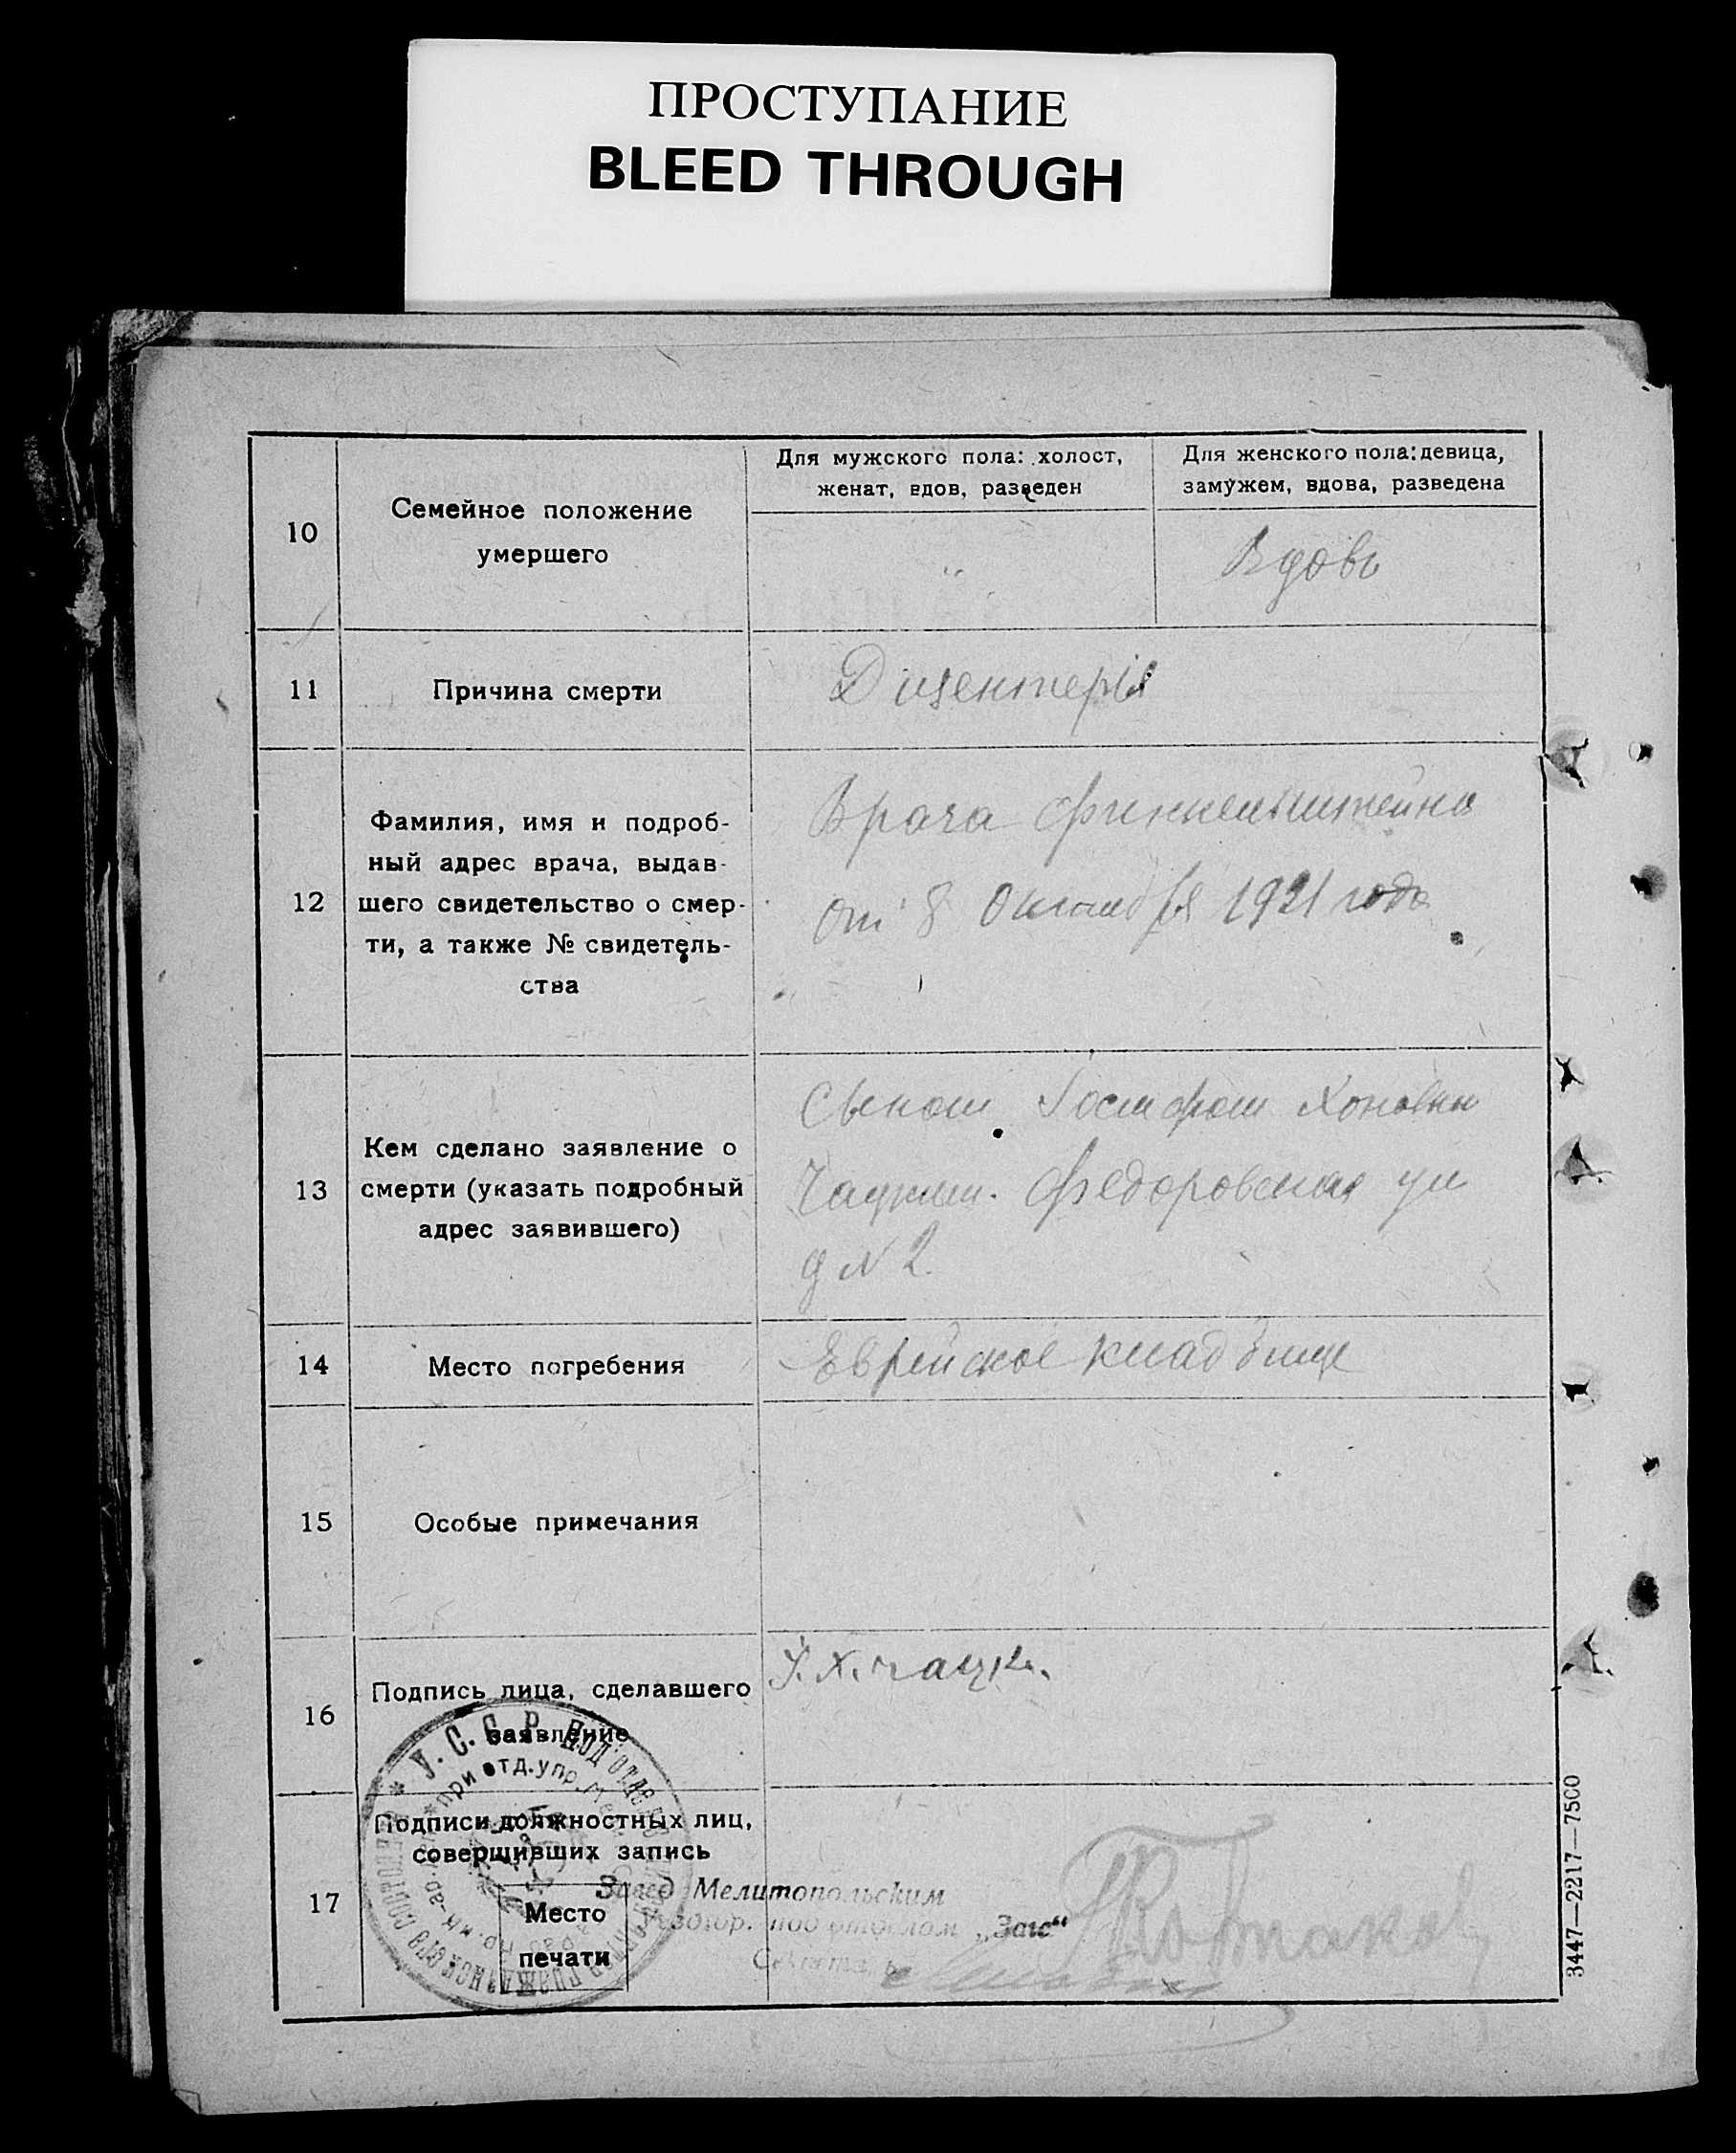 ПРОСТУПАНИЕ
BLEED THROUGH
10
Семейное положение
умершего
Для мужского пола: холост,
женат, вдов, разведен
Для женского пола: девица,
замужем, вдова, разведена
Вдовь
11
Причина смерти
Дизентерія
12
Фамилия, имя и подроб-
ный адрес врача, выдав-
шего свидетельство о смер-
ти, а также № свидетель-
ства
Врача Финкельштейна
от 8 Октября 1921 года
13
Кем сделано заявление о
смерти (указать подробный
адрес заявившего)
Сыном Іосифом
Федоровская ул
д N 2
14
Место погребения
Еврейское кладбище
15
Особые примечания
16
Подпись лица, сделавшего
заявление
17
Подписи должностных лиц,
совершивших запись
Место
печати
У. С. С. Р. Подотдел
при отд. упр.
Завед Мелитопольским
под отделом „Загс“
3447—2217—7500